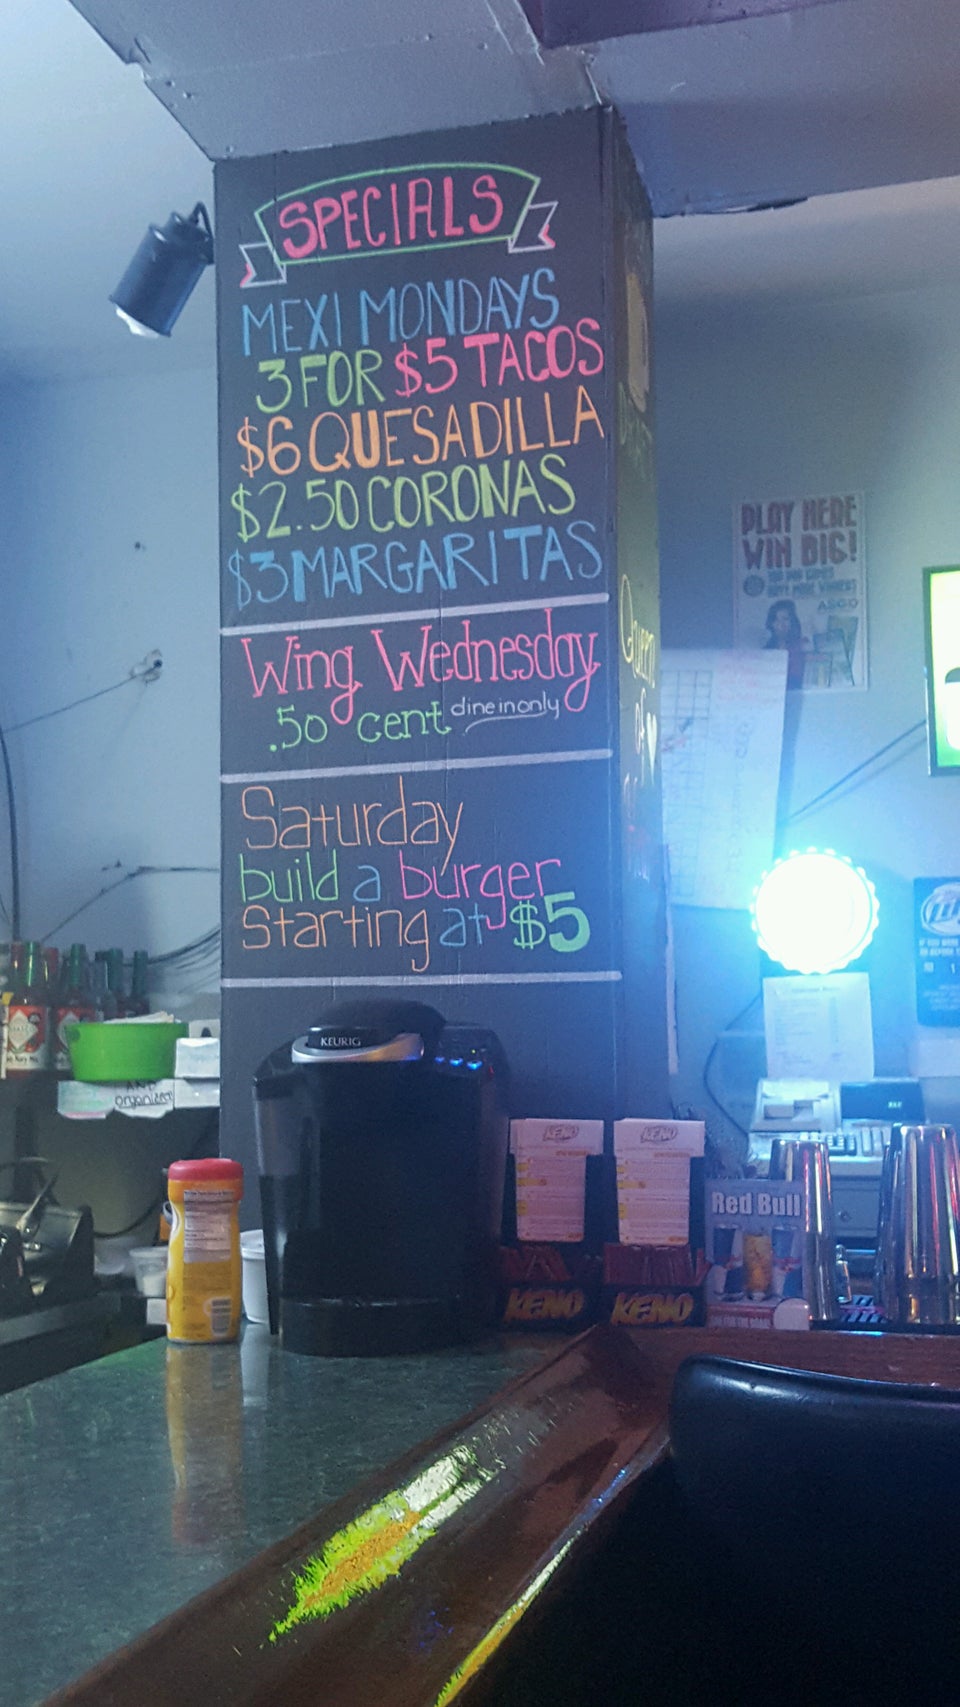 SPECIALS
MEXI MONDAYS
3 FOR $5 TACOS
$6 QUESADILLA
$2.50 CORONAS
$3 MARGARITAS
Wing Wednesday
.50 cent dine in only
Saturday
build a burger
starting at $5
Queen
of
PLAY HERE
WIN BIG!
KEURIG
AND
organizer
KENO
KENO
KENO
KENO
Red Bull